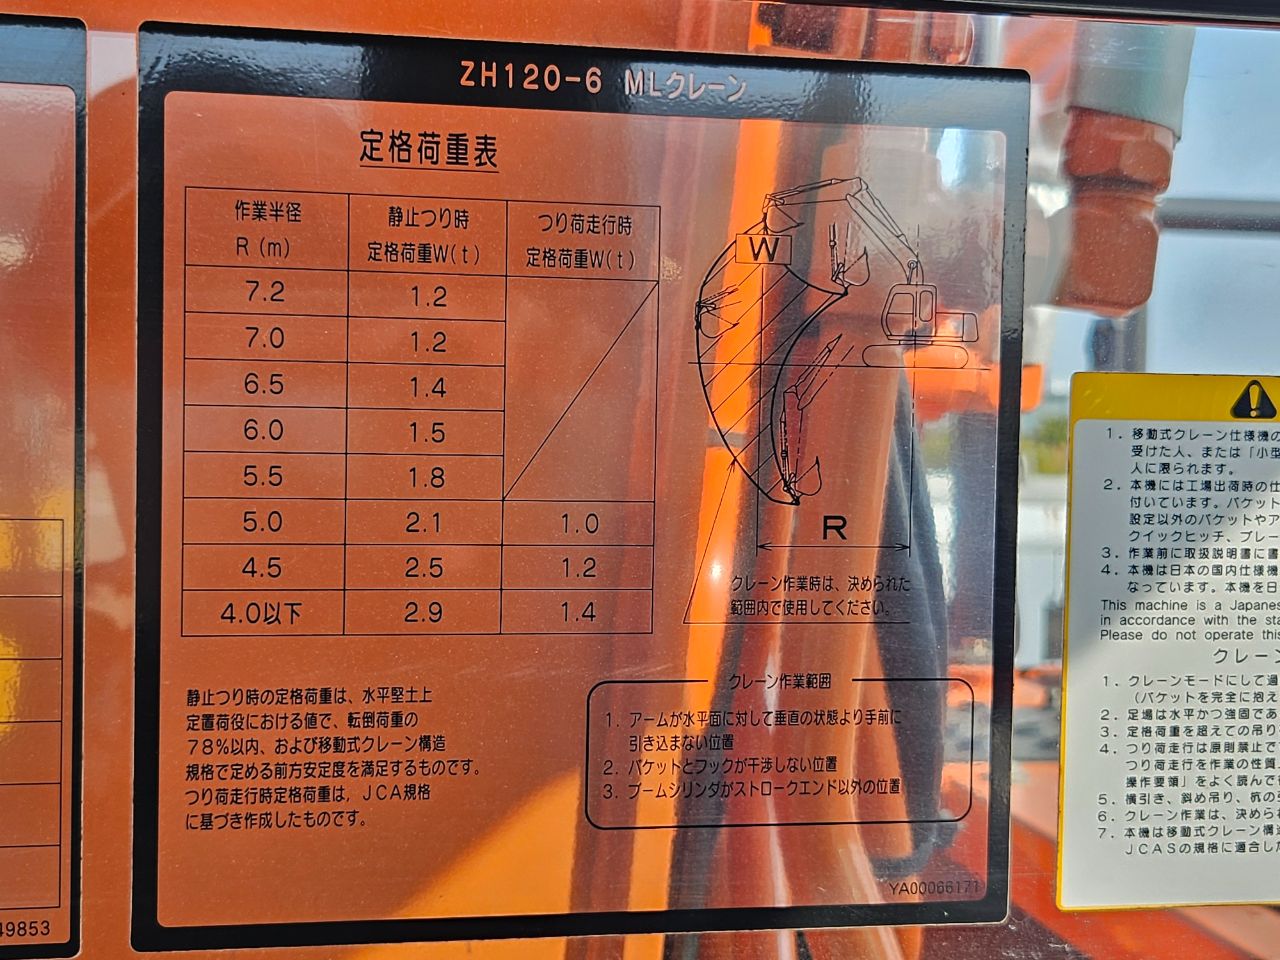 ZH120-6 MLクレーン
定格荷重表
作業半径 静止つり時 つり荷走行時
R(m) 定格荷重W(t) 定格荷重W(t)
7.2 1.2
7.0 1.2
6.5 1.4
6.0 1.5
5.5 1.8
5.0 2.1 1.0
4.5 2.5 1.2
4.0以下 2.9 1.4
W
R
クレーン作業時は、決められた
範囲内で使用してください。
静止つり時の定格荷重は、水平堅土上
定置荷役における値で、転倒荷重の
78%以内、および移動式クレーン構造
規格で定める前方安定度を満足するものです。
つり荷走行時定格荷重は、JCA規格
に基づき作成したものです。
クレーン作業範囲
1. アームが水平面に対して垂直の状態より手前に
引き込まない位置
2. バケットとフックが干渉しない位置
3. ブームシリンダがストロークエンド以外の位置
YA00066171
49853
1. 移動式クレーン仕様機の
受けた人、または「小型
人に限られます。
2. 本機には工場出荷時の仕
付いています。バケット
設定以外のバケットやア
クイックヒッチ、ブレー
3. 作業前に取扱説明書に書
4. 本機は日本の国内仕様機
なっています。本機を日
This machine is a Japanes
in accordance with the sta
Please do not operate this
クレーン
1. クレーンモードにして過
(バケットを完全に抱え
2. 足場は水平かつ強固であ
3. 定格荷重を超えての吊り
4. つり荷走行は原則禁止で
つり荷走行を作業の性質
操作要領」をよく読んで
5. 横引き、斜め吊り、杭の
6. クレーン作業は、決めら
7. 本機は移動式クレーン構造
JCASの規格に適合した